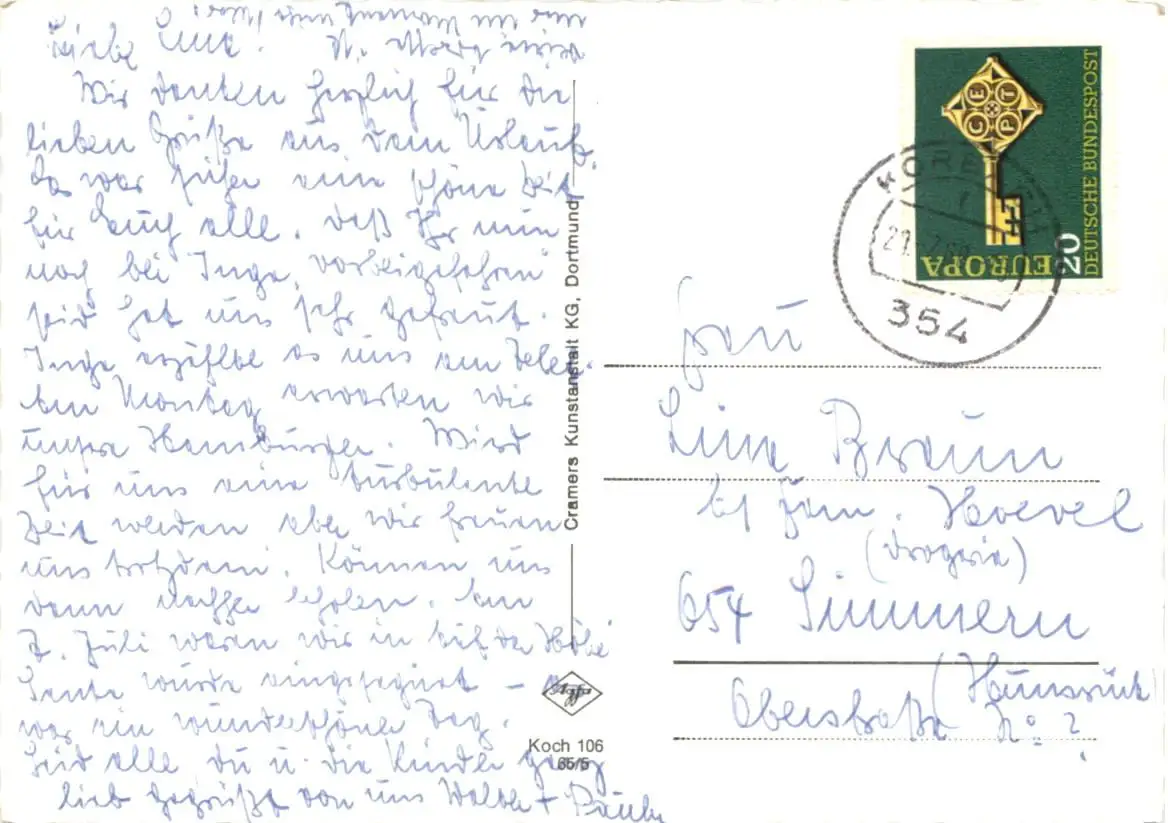 Liebe Lina!
Wir danken herzlich für die
lieben Grüße aus dem Urlaub.
Das war sicher eine schöne Zeit
für Euch alle. Daß Ihr nun
noch bei Inge "vorbeigefahren"
seid hat uns sehr gefreut.
Inge erzählte es uns am Telef.
Am Montag erwarten wir
unsre Hamburger. Wird
für uns eine turbulente
Zeit werden aber wir freuen
uns trotzdem. Können uns
dann nachher erholen. Am
7. Juli waren wir in auf der Höhe
wurde eingesegnet –
war ein wunderschöner Tag.
Seid alle du u. die Kinder ganz
lieb gegrüßt von uns Walter + Paula
Cramers Kunstanstalt KG, Dortmund
Agfa
Koch 106
65/5
DEUTSCHE BUNDESPOST
20
EUROPA
CEPT
354
Frau
Lina Braun
bei Fam. Hoevel
(Drogerie)
654 Simmern
(Hunsrück)
Oberstraße No ?